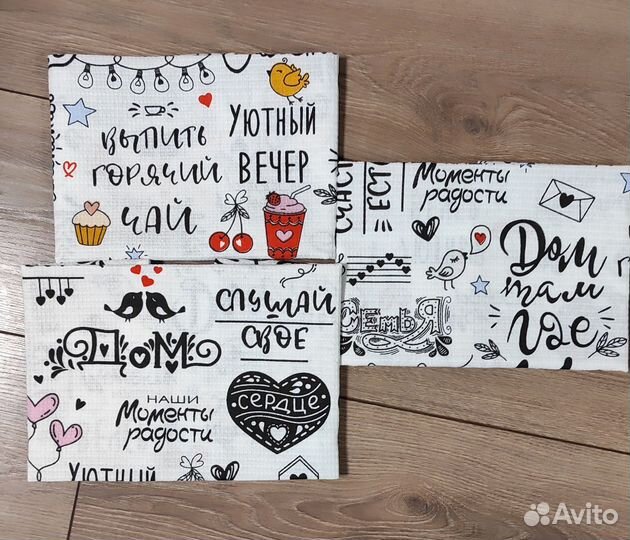 Выпить
горячий
чай
Уютный
вечер
Счаст
ест
Моменты
радости
Дом
там
где
Семья
Дом
Слушай
своё
сердце
Наши
Моменты
радости
Уютный
Avito